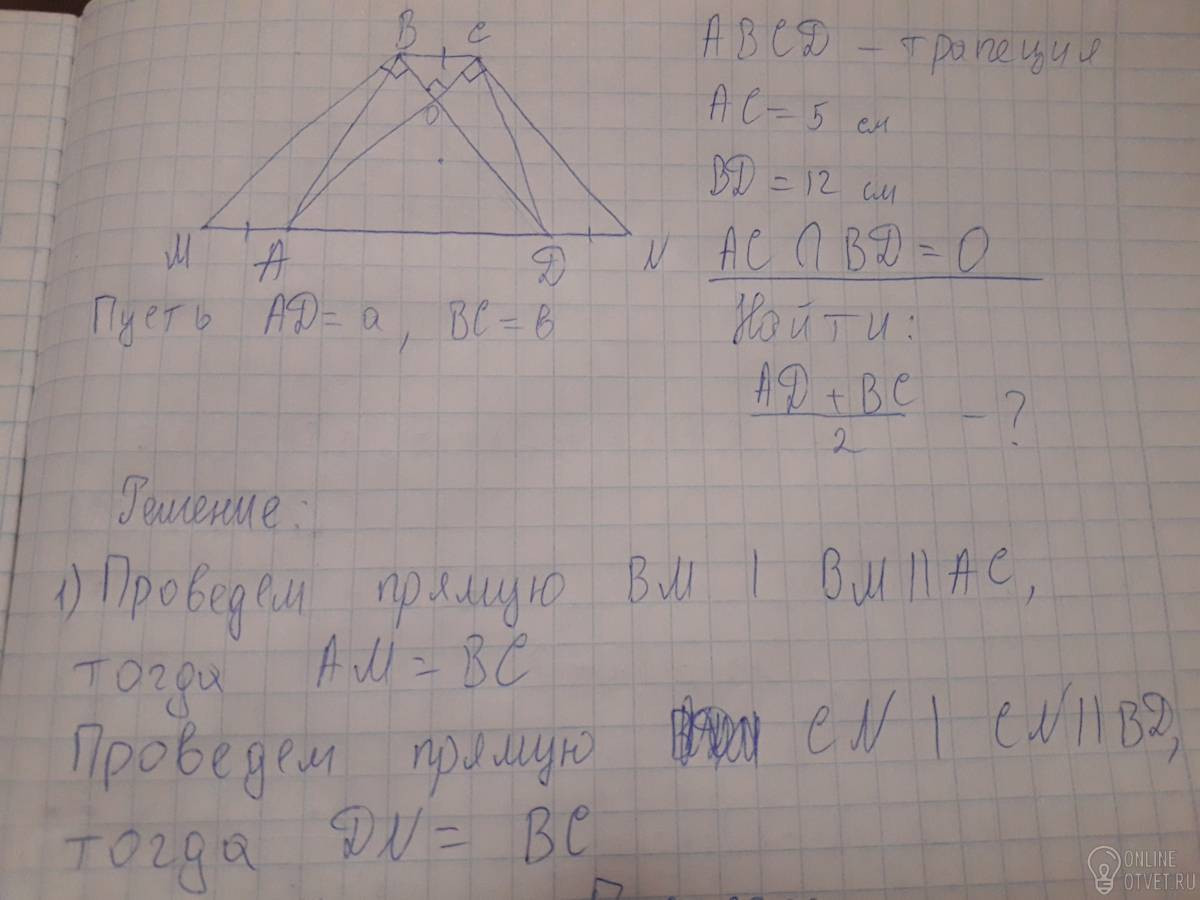 B C
O
M A D N
ABCD – трапеция
AC = 5 см
BD = 12 см
AC ∩ BD = O
Найти:
AD + BC
2
– ?
Пусть AD = a, BC = в
Решение:
1) Проведем прямую BM | BM || AC,
тогда AM = BC
Проведем прямую CN | CN || BD,
тогда DN = BC
ONLINE
OTVET.RU